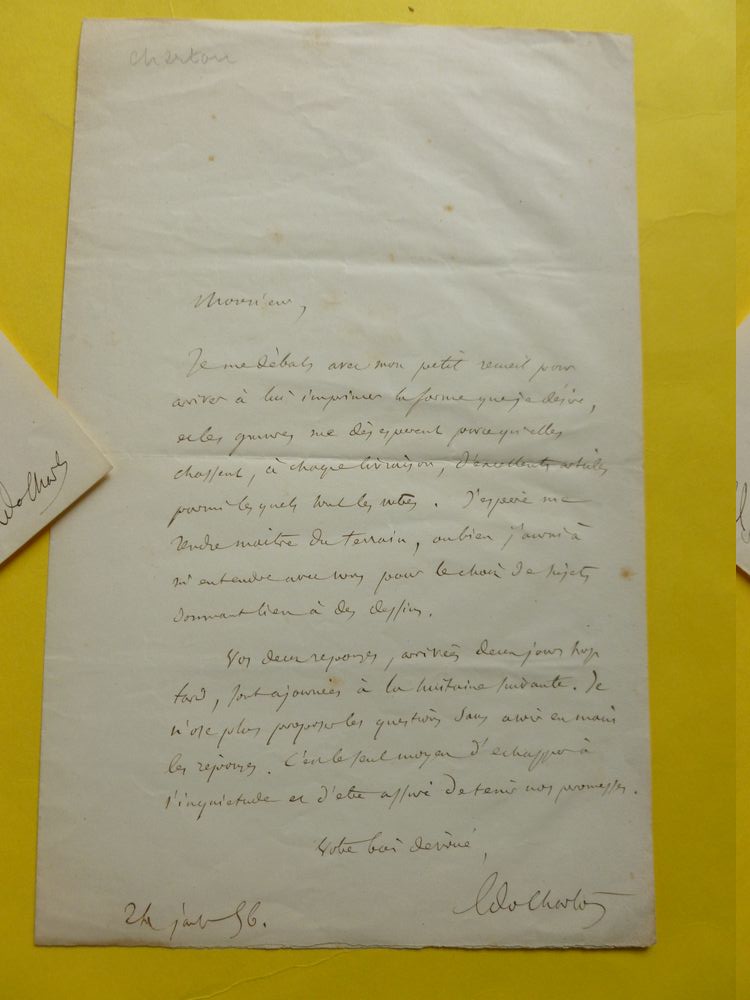 Charton
Monsieur,
Je me débats avec mon petit recueil pour
arriver à lui imprimer la forme que je désire,
et les gravures me désespèrent parce qu'elles
chassent, à chaque livraison, d'excellents articles
parmi lesquels sont les vôtres. J'espère me
rendre maître du terrain, ou bien j'aurai à
m'entendre avec vous pour le choix de sujets
donnant lieu à des dessins.
Vos deux réponses, arrivées deux jours trop
tard, sont ajournées à la huitaine suivante. Je
n'ose plus proposer les questions sans avoir en main
les réponses. C'est le seul moyen d'échapper à
l'inquiétude et d'être assuré de tenir nos promesses.
Votre bien dévoué,
Ed Charton
24 janv 56.